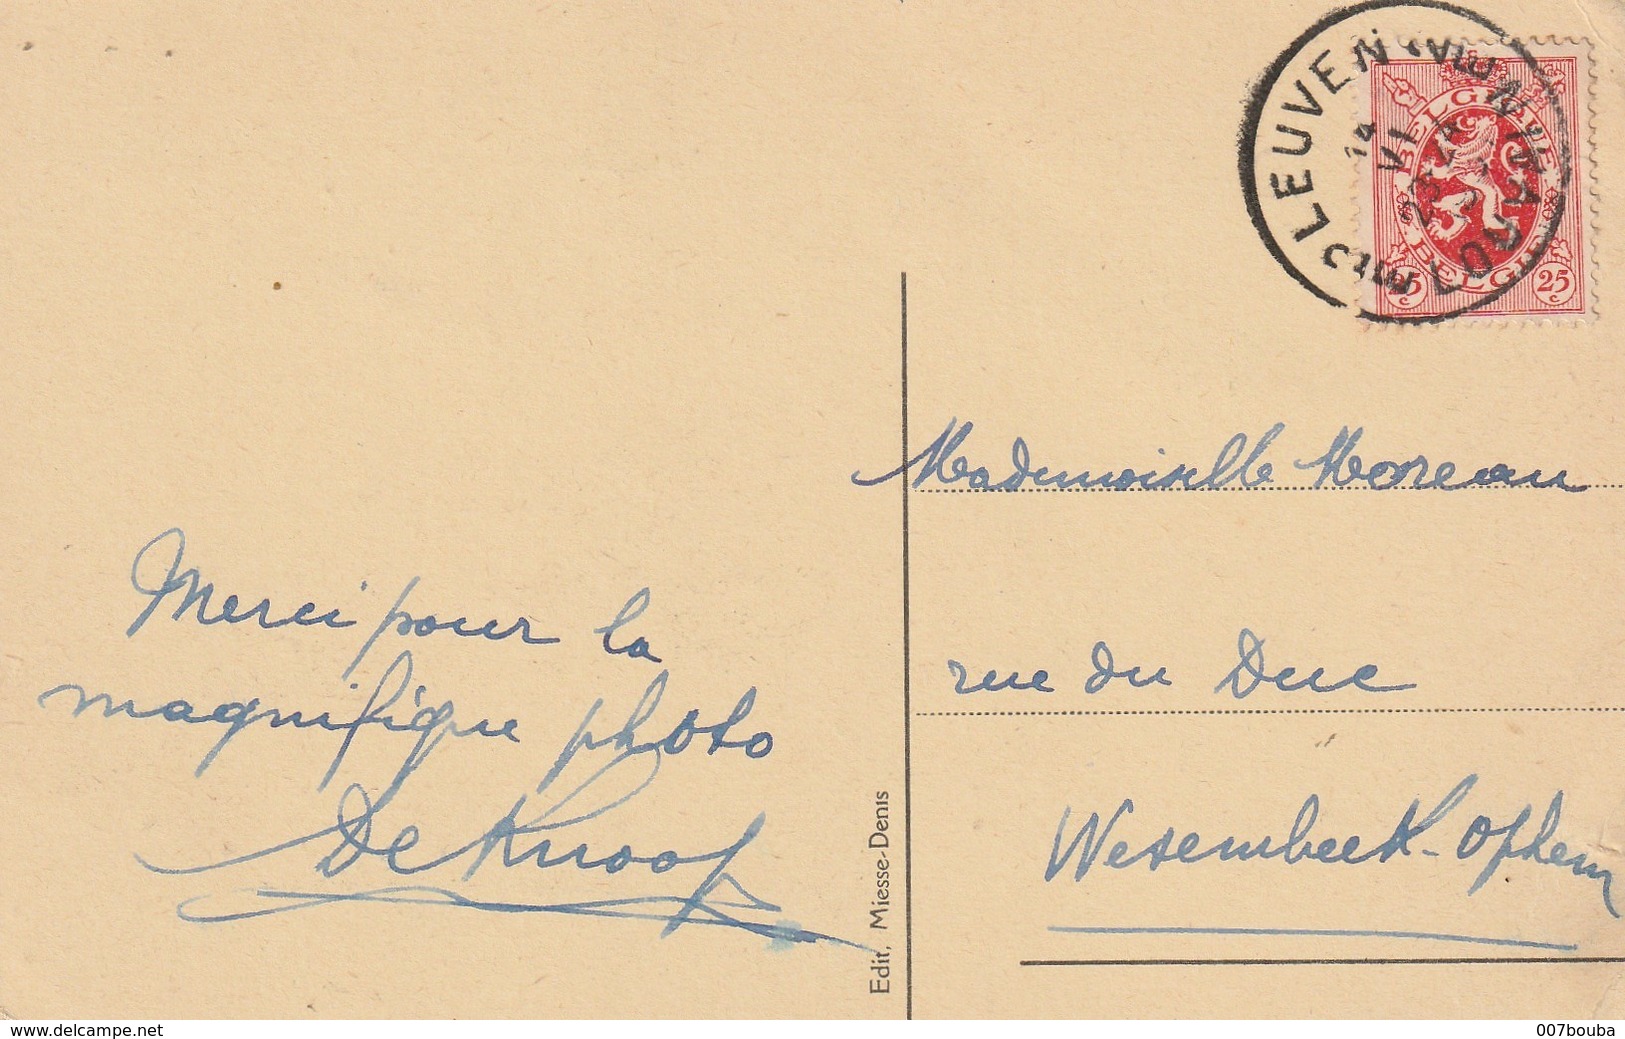 Merci pour la
magnifique photo
De Knoop
Edit. Miesse-Denis
LEUVEN
LOUVAIN
14
VI
BELGIQUE
BELGIË
25 c
25 c
Mademoiselle Moreau
rue du Duc
Wesembeek-Ophem
www.delcampe.net
007bouba